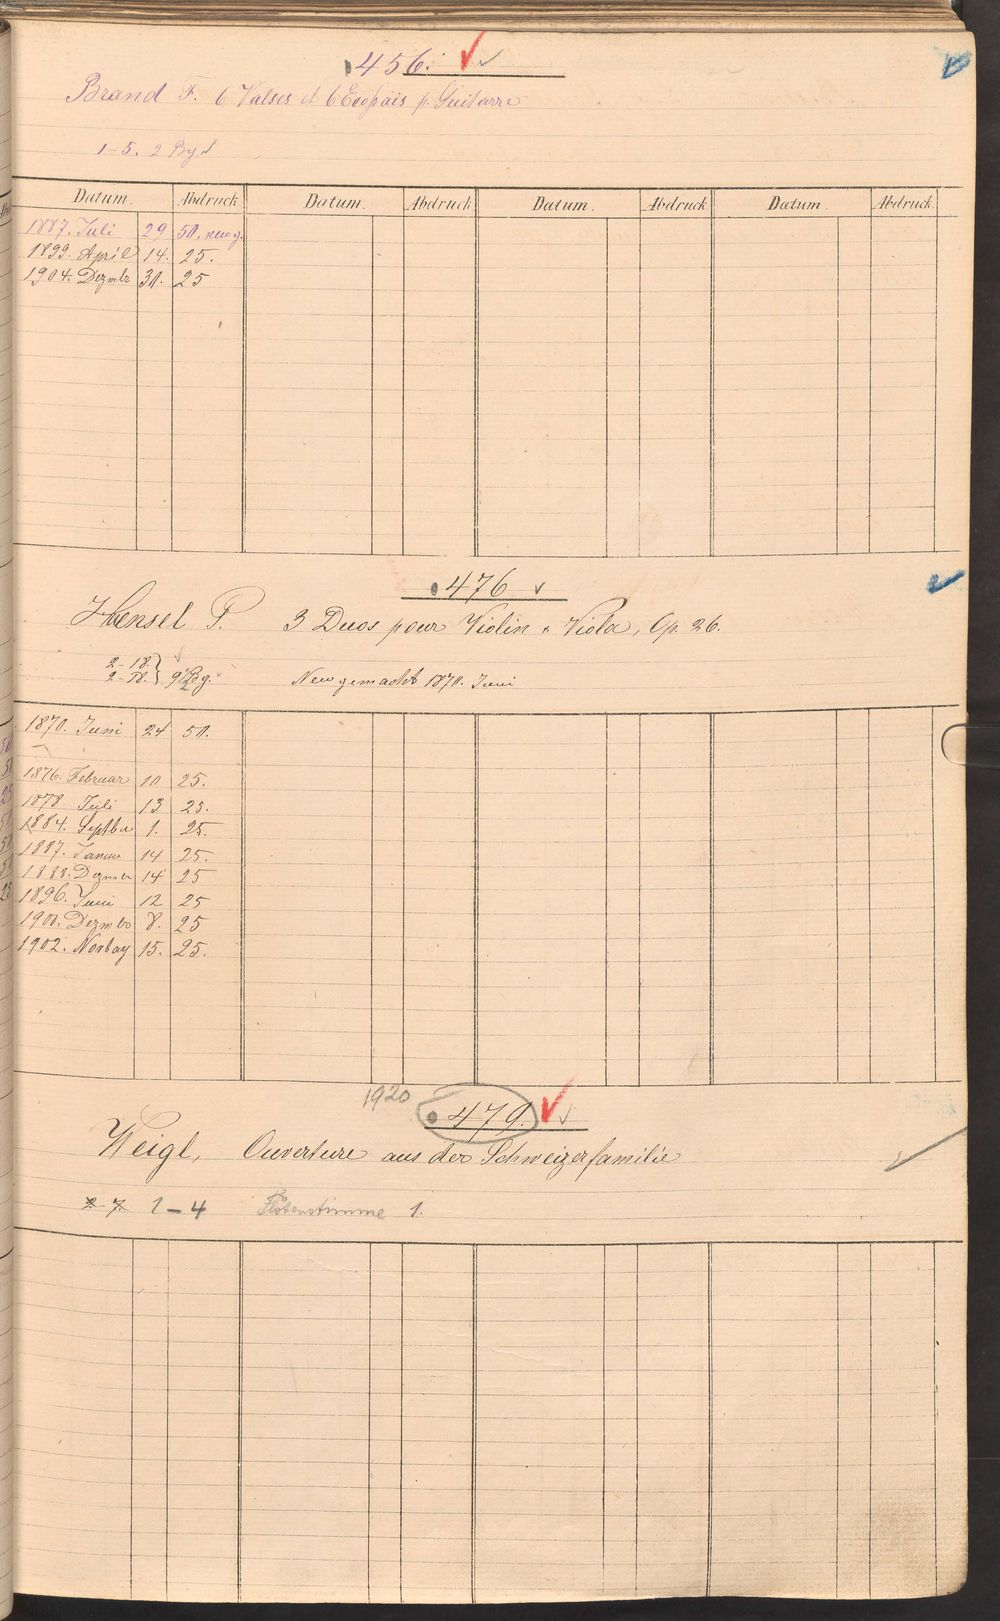 456.
Brand F. 6 Valses et 6 Ecopais p. Guitarre
1-5. 2 Bg.
Datum. Abdruck Datum. Abdruck Datum. Abdruck Datum Abdruck
1887. Juli 29 50. neu g.
1899. April 14. 25.
1904. Dezmbr 30. 25
476
Haensel P. 3 Duos pour Violin & Viola, Op. 26.
2-18.
2-18. 9 1/2 Bg. Neu gemacht 1870. Juni
1870. Juni 24 50.
1876. Februar 10 25.
1878 Juli 13 25.
1884. Septbr 1. 25.
1887. Januar 14 25.
1888. Dezmbr 14 25
1896. Juni 12 25
1900. Dezmbr 8. 25
1902. 15. 25.
1920 479.
Weigl, Ouverture aus der Schweizerfamilie
2-7. 1-4 Flötenstimme 1.